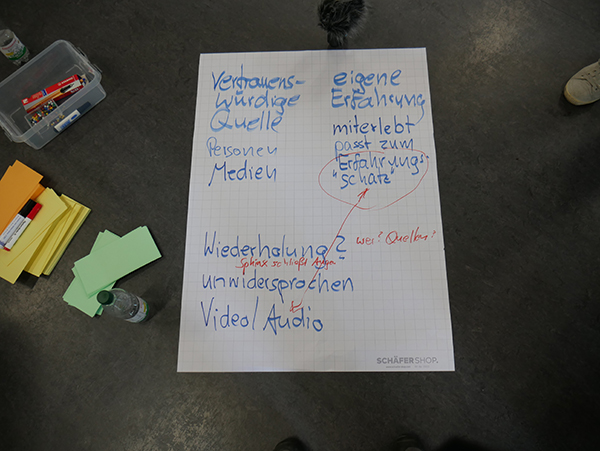 Vertrauens-
würdige
Quelle
Personen
Medien
eigene
Erfahrung
miterlebt
passt zum
"Erfahrungs-
schatz"
Wiederholung?
wer? Quellen?
schließt
unwidersprochen
Video/Audio
SCHÄFER SHOP.